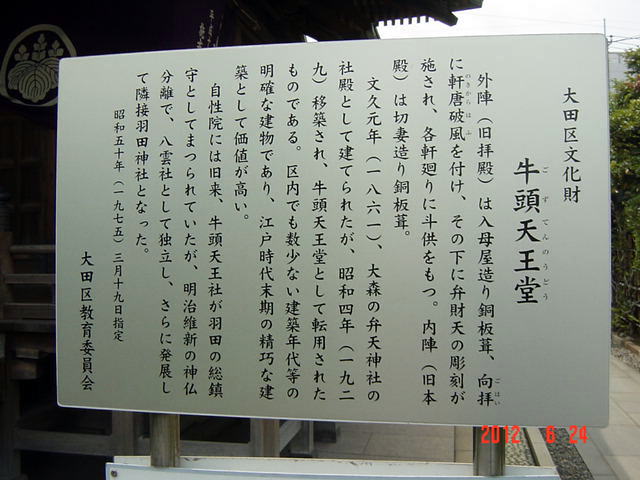 大田区文化財
牛頭天王堂
ごずてんのうどう
外陣（旧拝殿）は入母屋造り銅板葺、向拝
ごはい
に軒唐破風を付け、その下に弁財天の彫刻が
のきからはふ
施され、各軒廻りに斗供をもつ。内陣（旧本
殿）は切妻造り銅板葺。
文久元年（一八六一）、大森の弁天神社の
社殿として建てられたが、昭和四年（一九二
九）移築され、牛頭天王堂として転用された
ものである。区内でも数少ない建築年代等の
明確な建物であり、江戸時代末期の精巧な建
築として価値が高い。
自性院には旧来、牛頭天王社が羽田の総鎮
守としてまつられていたが、明治維新の神仏
分離で、八雲社として独立し、さらに発展し
て隣接羽田神社となった。
昭和五十年（一九七五）三月十九日指定
大田区教育委員会
2012. 6 24